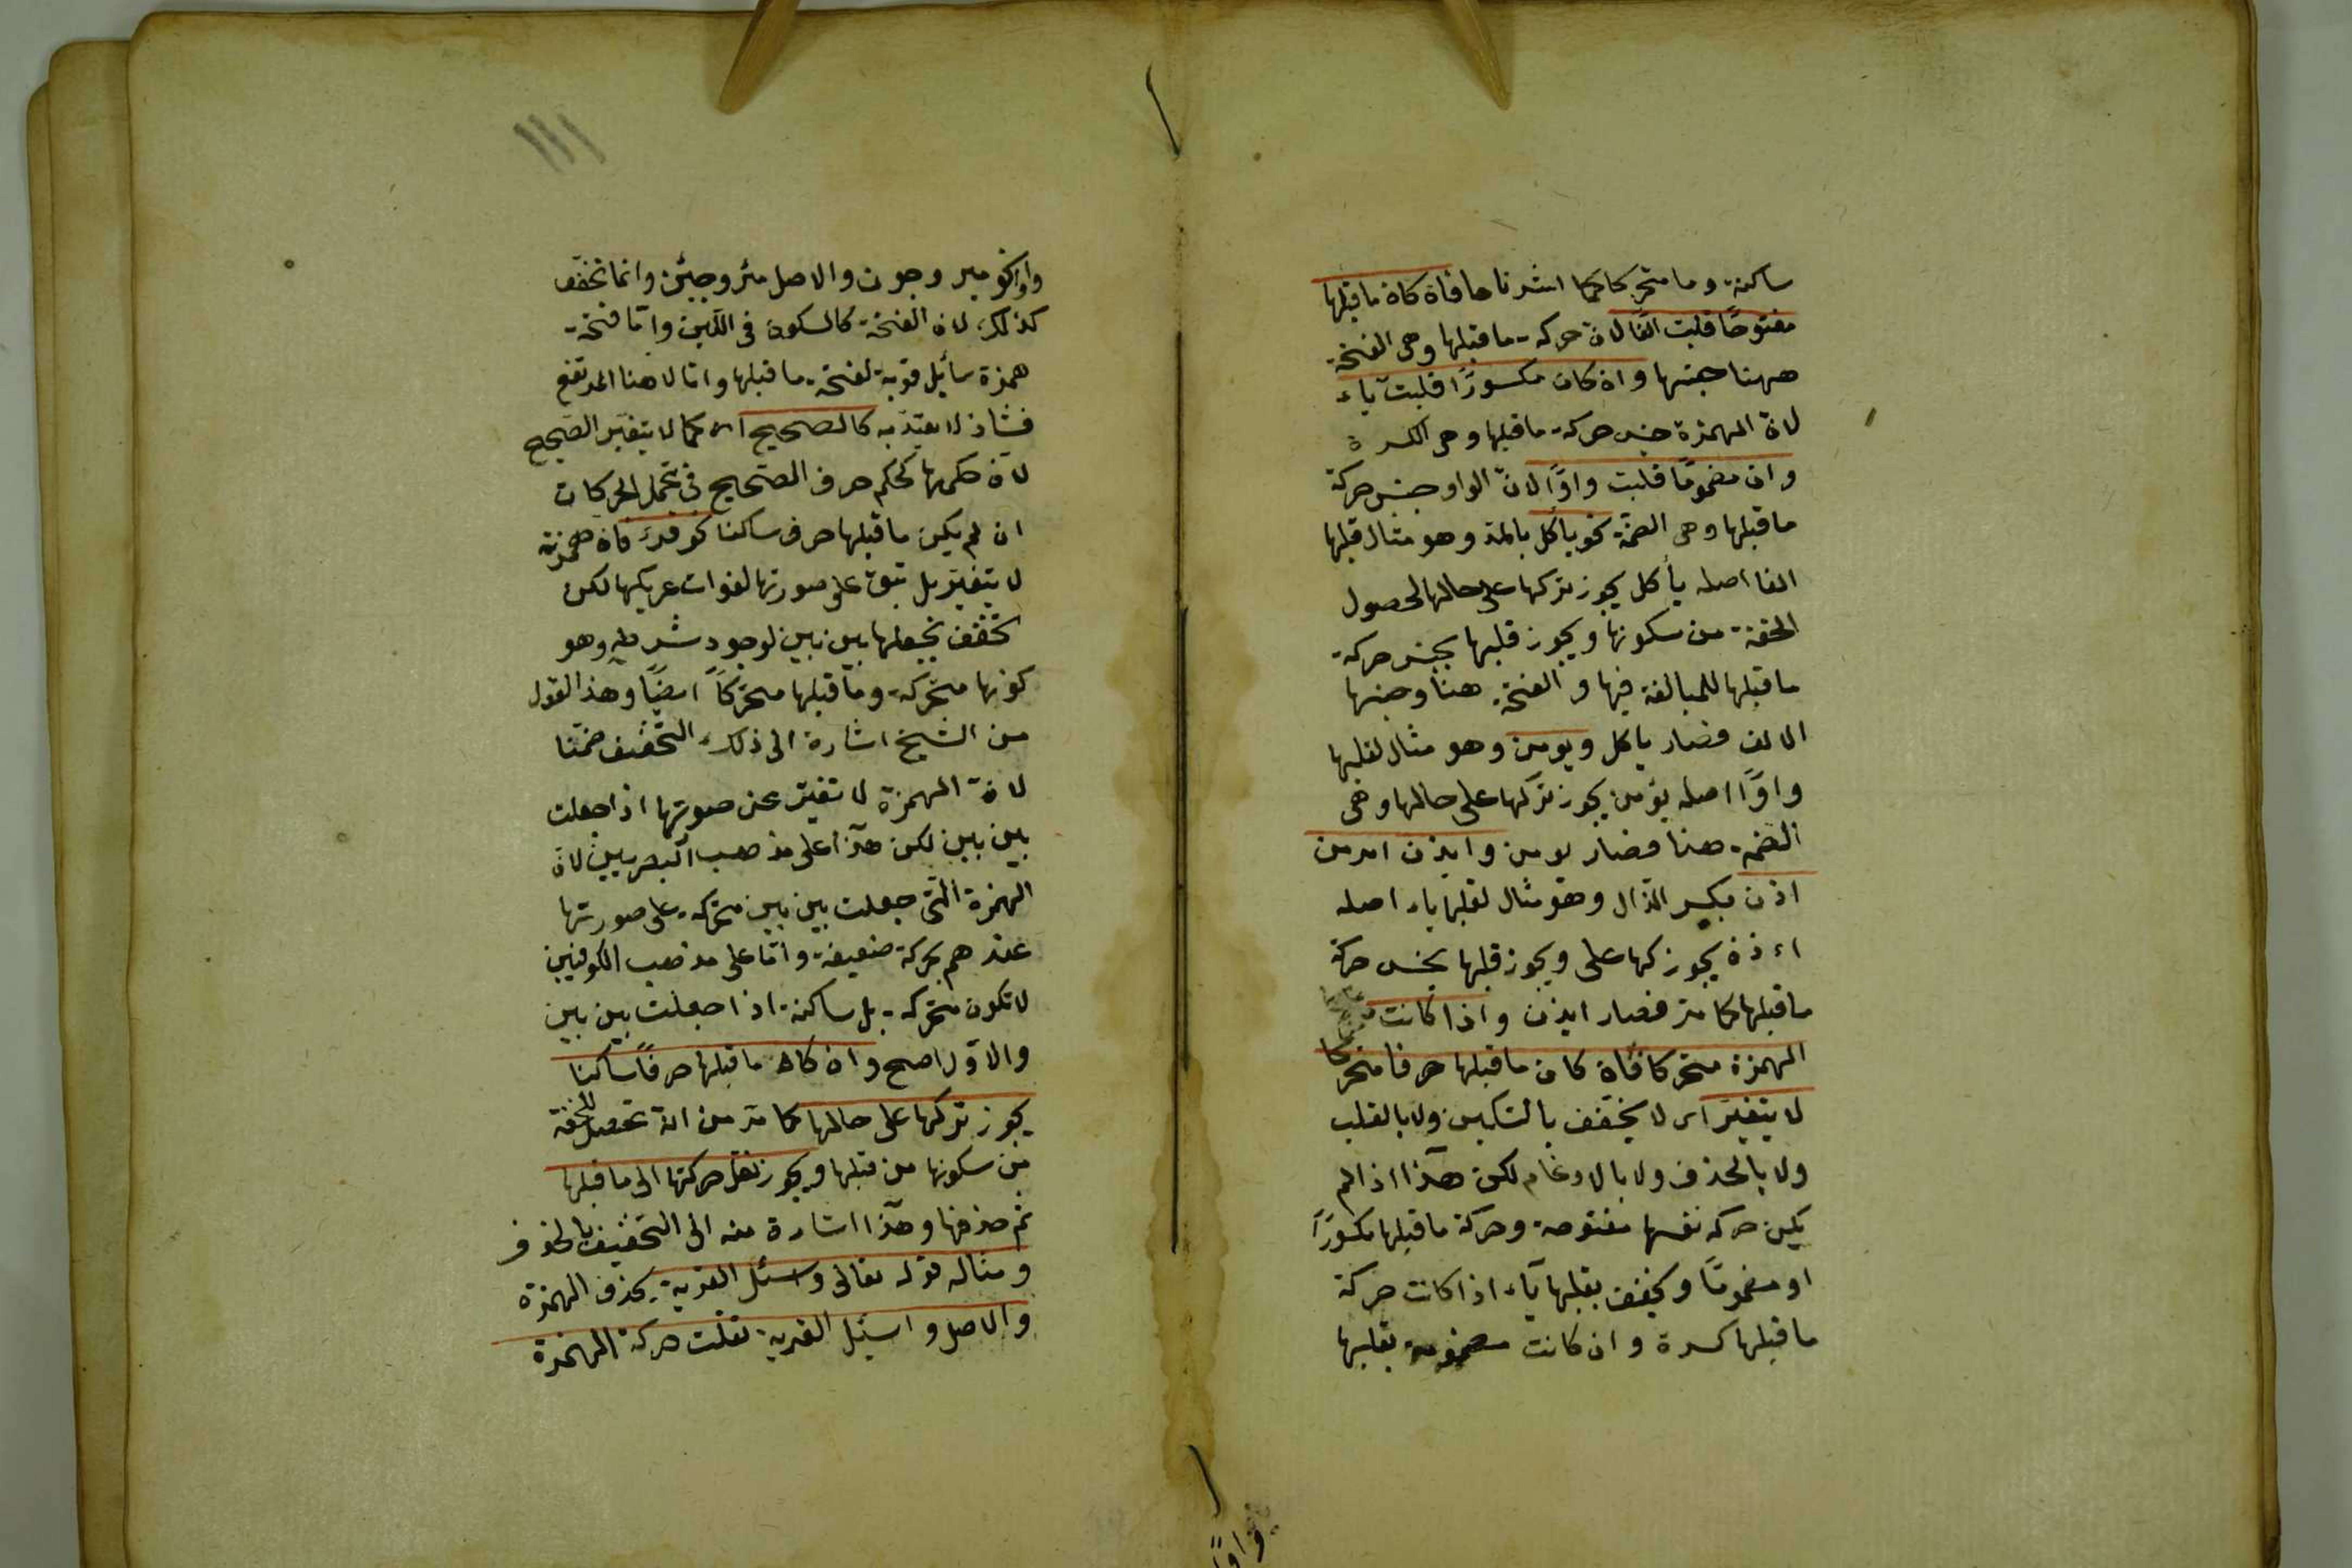 ساكنة وما متحركا كما اشرنا ها فان كان ما قبلها
مفتوحًا قلبت الفًا لان حركة ما قبلها وهى الفتحة
ههنا جنسها وان كان مكسورًا قلبت ياء
لان الهمزة جنس حركة ما قبلها وهى الكسرة
وان مضمومًا قلبت واوًا لانّ الواو جنس حركة
ما قبلها وهى الضمة نحو ياكل بالمد وهو مثال قبلها
الفا اصله يأكل يجوز تركها على حالها لحصول
الخفة من سكونها ويجوز قلبها بجنس حركة
ما قبلها للمبالغة فيها و الفتحة هنا وجنسها
الالف فصار ياكل ويومن وهو مثال لقلبها
واوًا اصله يؤمن يجوز تركها على حالها وهى
الضمة هنا فصار يومن وايذن امر من
اذن بكسر الذال وهو مثال لقلبها ياء اصله
اءذن يجوز كها على ويجوز قلبها بجنس حركة
ما قبلها كما مر فصار ايذن واذا كانت
الهمزة متحركا فان كان ما قبلها حرفا متحركا
لا يتغير اى لا يخفف بالتسكين ولا بالقلب
ولا بالحذف ولا بالادغام لكن هذا اذا لم
يكن حركة نفسها مفتوحة وحركة ما قبلها مكسورًا
او مضمومًا ويخفف بقلبها ياء اذا كانت حركة
ما قبلها كسرة وان كانت مضمومة بقلبها
واوًا
١١١
واوا نحو مير وجون والاصل مئر وجئن وانما تخفف
كذلك لان الفتحة كالسكون فى اللين وامّا فتحة
همزة سأيل قوية لفتحة ما قبلها واما لا هناك المرتع
فشاذ لا يعتدّ به كالصحيح اى كما لا يتغير الصحيح
لان حكمها كحكم حرف الصحيح فى تحمل الحركات
ان لم يكن ما قبلها حرف ساكنا نحو قرء فان همزته
لا يتغير بل تبقى على صورتها لقوات عريكتها لكن
تخفف بجعلها بين بين لوجود شرطه وهو
كونها متحركة وما قبلها متحركًا ايضًا وهذا القول
من الشيخ اشارة الى ذلك التخفيف ضمنا
لان الهمزة لا تغير عن صوتها اذا جعلت
بين بين لكن هذا على مذهب البصريين لان
الهمزة التى جعلت بين بين متحركة على صورتها
عندهم بحركة ضعيفة وامّا على مذهب الكوفيين
لا تكون متحركة بل ساكنة اذا جعلت بين بين
والاول اصح وان كان ما قبلها حرفًا ساكنا
يجوز تركها على حالها كما مر من انه تحصل الخفة
من سكونها من قبلها ويجوز نقل حركتها الى ما قبلها
ثم حذفها وهذا اشارة منه الى التخفيف بالحذف
ومثاله قوله تعالى وسئل القرية بحذف الهمزة
والاصل واسئل القرية نقلت حركة الهمزة